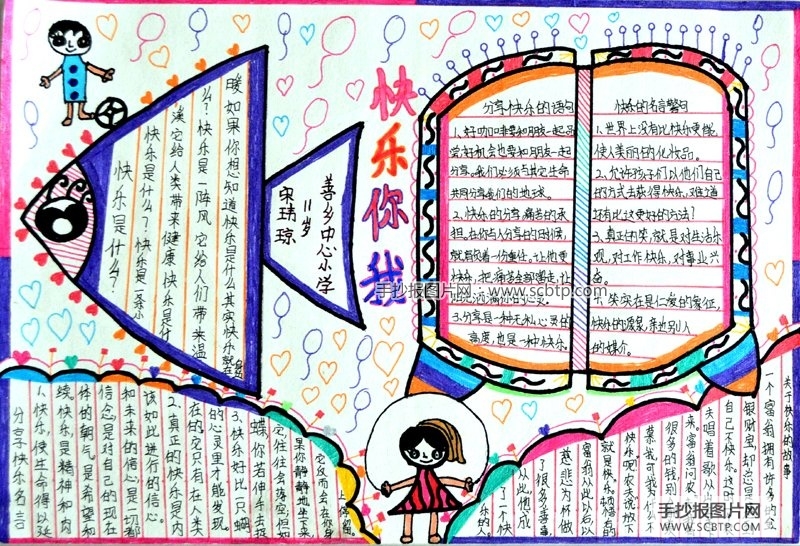 快乐你我
快乐是什么?
快乐是什么?快乐是一条小
溪它给人类带来健康 快乐是什
么?快乐是一阵风 它给人们带来温
暖 如果你想知道快乐是什么其实快乐就在
善乡中心小学
11岁
宋瑞琼
分享快乐的语句
1、好咖啡要和朋友一起品
尝好机会也要和朋友一起
分享。我们必须与其它生命
共同分享我们的地球。
2、快乐的分享,痛苦的承
担。在你与人分享的日时候,
就肩负着一份责任,让他更
快乐,把痛苦全部赶走,让
3、分享是一种无私心灵的
高度,也是一种快乐。
快乐的名言警句
1、世界上没有比快乐更能
使人美丽的化妆品。
2、允许孩子们以他们自己
的方式去获得快乐,难道
还有比这更好的方法?
3、真正的笑,就是对生活乐
观,对工作快乐,对事业兴
奋。
4、笑实在是仁爱的象征,
快乐的源泉,亲近别人
的媒介。
手抄报图片网:www.scbtp.com
分享快乐名言
1、快乐,使生命得以延
续。快乐,是精神和肉
体的朝气,是希望和
信念,是对自己的现在
和未来的信心,是一切都
该如此进行的信心。
2、真正的快乐,是内
在的,它只有在人类
的心灵里才能发现。
3、快乐好比一只蝴
蝶,你若伸手去捉
它,往往会落空,但如
果你静静地坐下来,
它反而会在你身
上停留。
关于快乐的故事
一个富翁拥有许多的金
银财宝,却总是
自己不快乐。这时
夫唱着歌从
来,富翁问农
很多的钱,别
慕我,可我为什么不
快乐呢?农夫说:放
就是快乐,
富翁从此以后以
慈悲为怀做
了很多善事,
从此他成
了一个快
乐的人。
手抄报图片网
WWW.SCBTP.COM